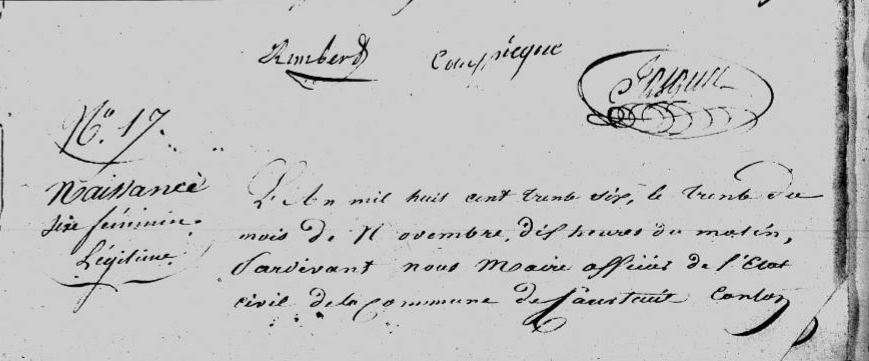 Rimberd
N.o 17.
Naissance
Sexe féminin.
Légitime.
L'An mil huit cent trente six, le trente du
mois de Novembre, dix heures du matin,
Pardevant nous Maire officier de l'Etat
civil de la Commune de Canton